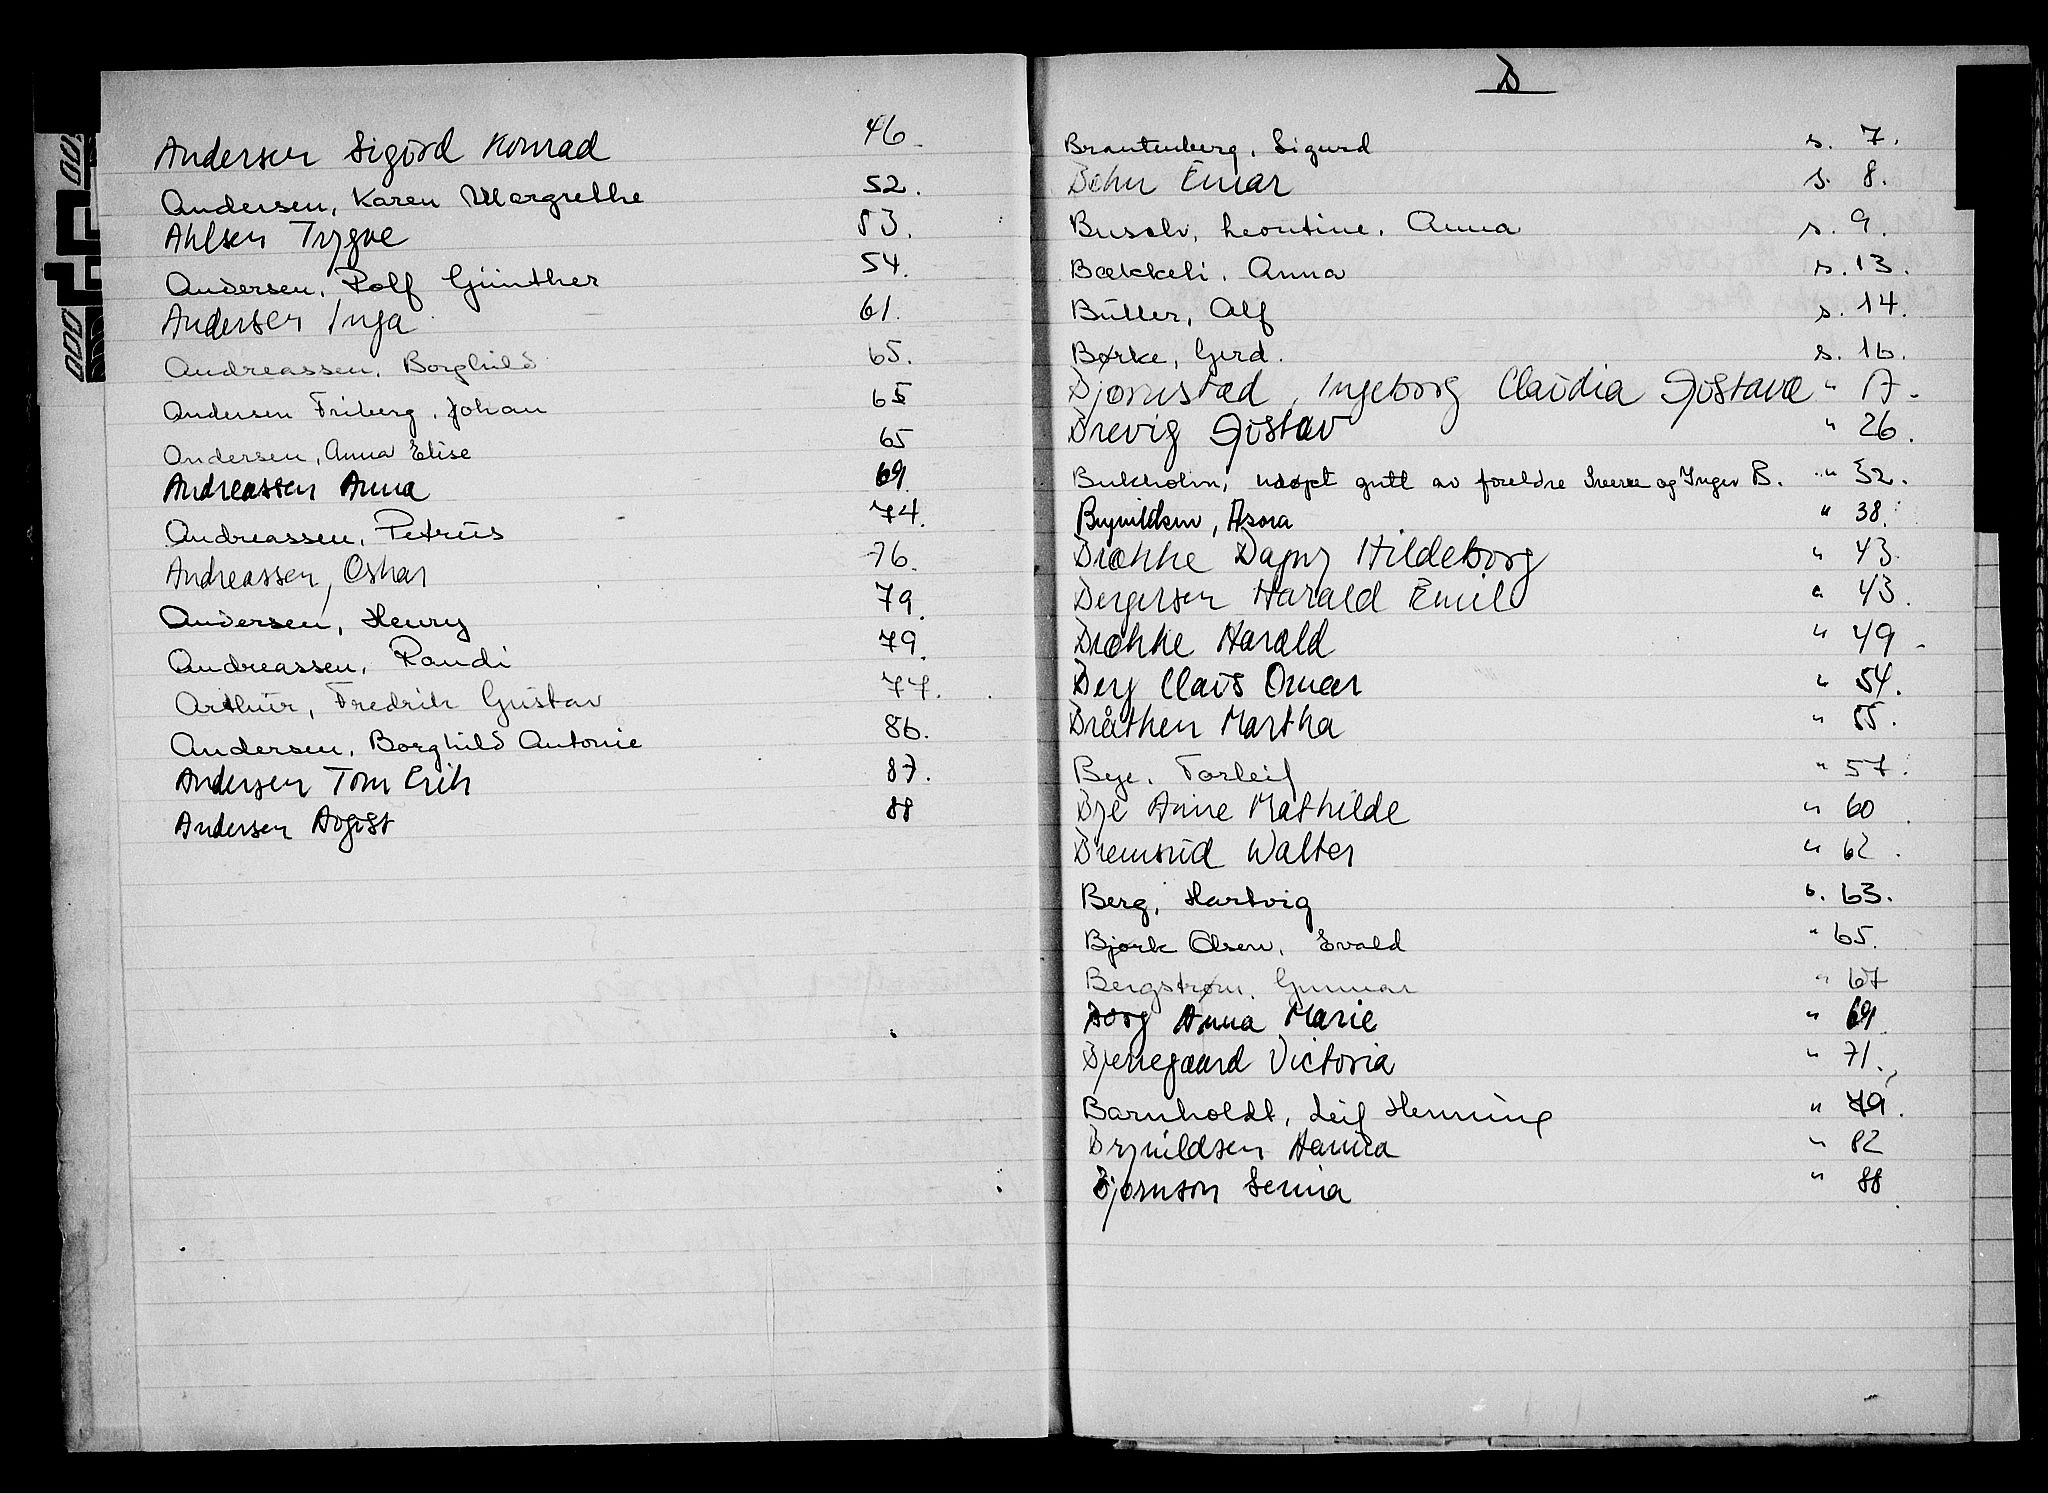 Andersen Sigurd Konrad 46.
Andersen, Karen Margrethe 52.
Ahlsen Trygve 53.
Andersen, Rolf Günther 54.
Andersen Inga 61.
Andreassen, Borghild 65.
Andersen Friberg, Johan 65
Andersen, Anna Elise 65
Andreassen Anna 69.
Andreassen, Petrus 74.
Andreassen, Oskar 76.
Andersen, Henry 79.
Andreassen, Randi 79.
Arthur, Fredrik Gustav 77.
Andersen, Borghild Antonie 86.
Andersen Tom Erik 87.
Andersen August 88
B
Brantenberg, Sigurd s. 7.
Bøhn Einar s. 8.
Leontine, Anna s. 9.
Bækkeli, Anna s. 13.
Büller, Alf s. 14.
Børke, Gerd. s. 16.
Bjørnstad, Ingeborg Claudia Gustava " 17.
Brevig Gustav " 26.
Bukholm, udøpt gutt av foreldre Sverre og Inger B. " 32.
Brynildsen, Asora " 38.
Brække Dagny Hildeborg " 43.
Bergersen Harald Emil " 43.
Brække Harald " 49.
Berg Claus Omar " 54.
Bråthen Martha " 55.
Bye, Torleif " 57.
Bye Anne Mathilde " 60.
Bremsrud Walter " 62.
Berg, Hartvig s. 63.
Bjørk Olsen, Evald " 65.
Bergstrøm, Gunnar " 67
Borg Anna Marie " 69.
Bjerregaard Victoria " 71.
Barnholdt, Leif Henning " 79.
Brynildsen Hanna " 82
Bjørnson Senna " 88.